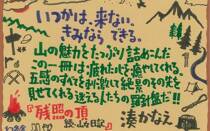 いつかは、来ない。
きみなら できる。
山の魅力をたっぷり詰めこんだ
この一冊は、疲れた心を癒やしてくれる。
五感のすべてを刺激して絶景のその先を
見せてくれる迷える人たちの羅針盤だ!!
『残照の頂
続・山女日記』
湊かなえ
幻冬舎